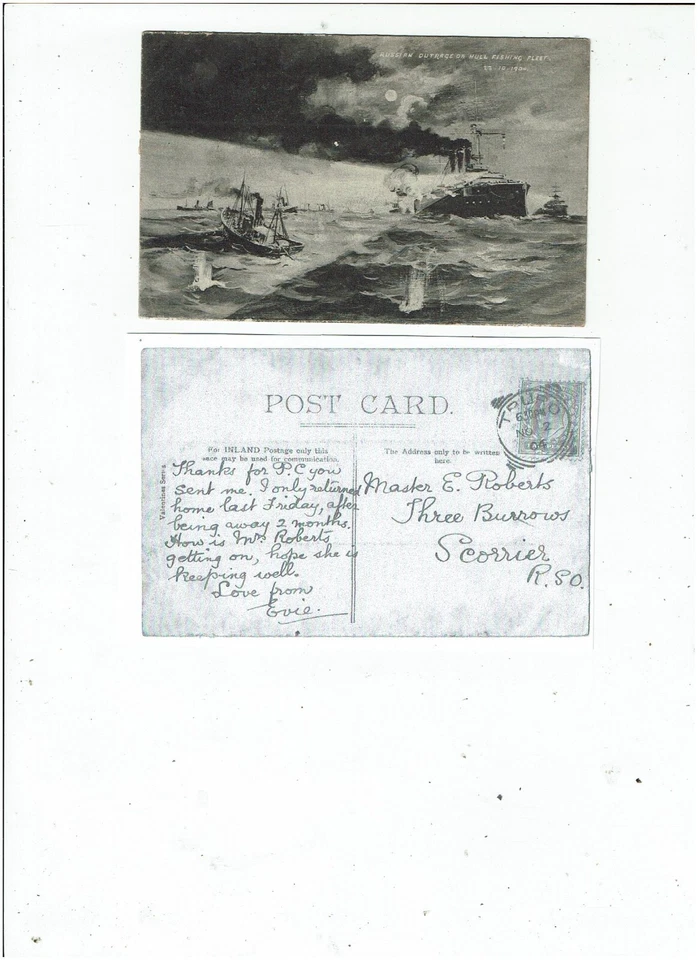 RUSSIAN OUTRAGE ON HULL FISHING FLEET.
22-10-1904.
POST CARD.
TRURO
NO 2
04
For INLAND Postage only this
space may be used for communication.
The Address only to be written
here.
Valentines Series
Thanks for P.C you
sent me. I only returned
home last Friday, after
being away 2 months.
How is Mrs Roberts
getting on, hope she is
keeping well.
Love from
Evie.
Master E. Roberts
Three Burrows
Scorrier
R.S.O.